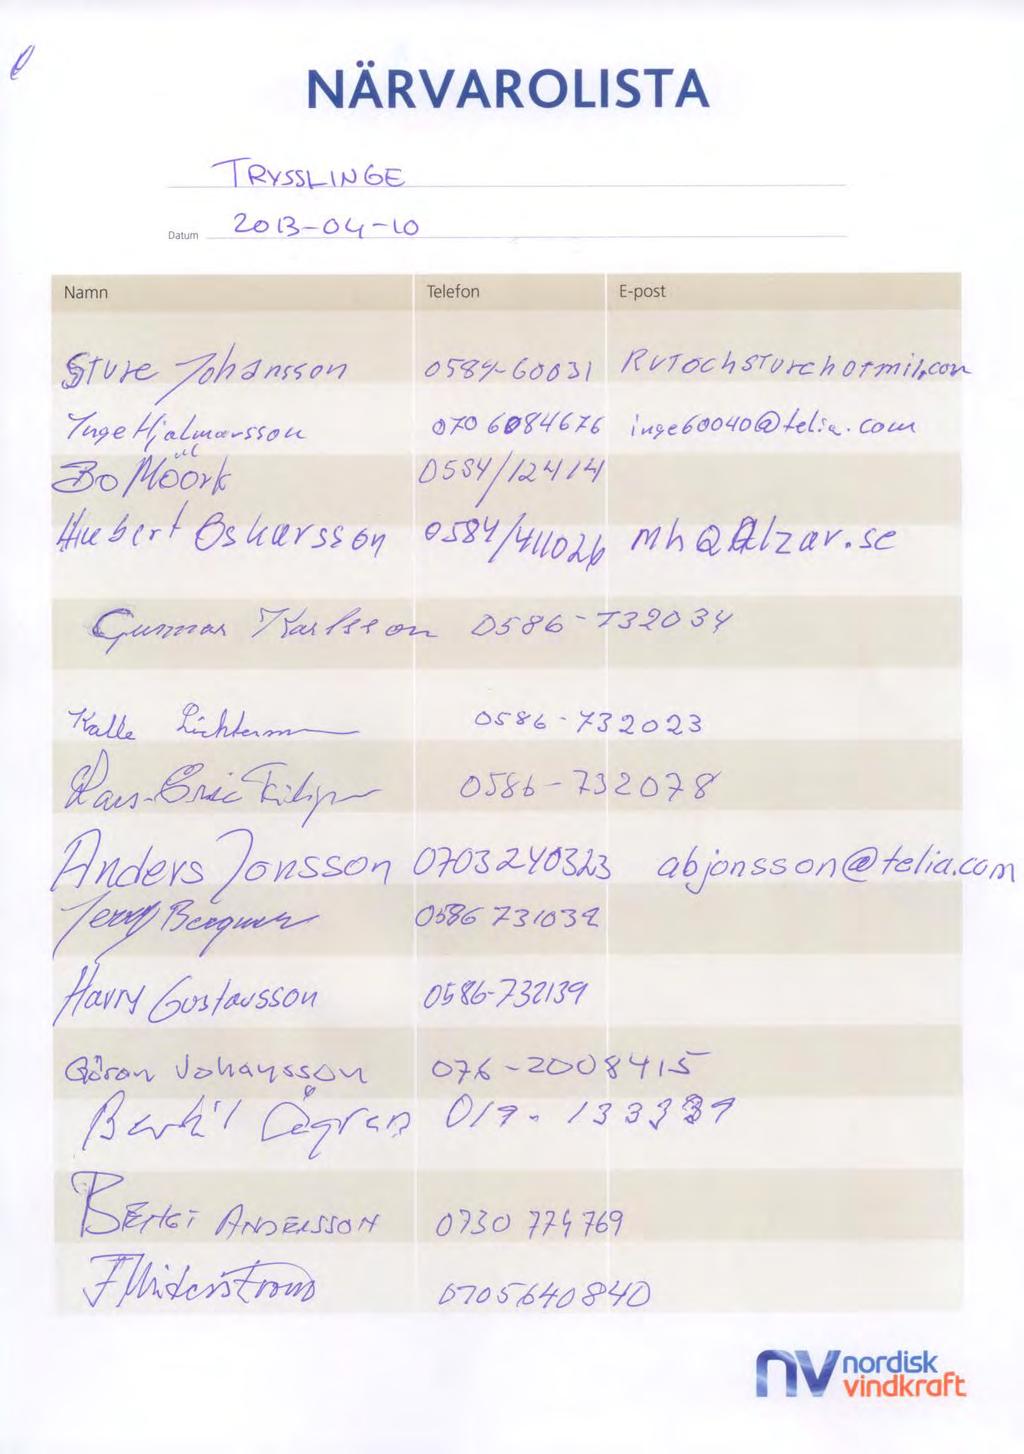 NÄRVAROLISTA
TRYSSLINGE
Datum 2013-04-10
Namn Telefon E-post
Sture Johansson 0584-60031
Inge Hjalmarsson 070 6084676 inge60040@telia.com
Bo Möörk 0584/12414
Hubert Oskarsson 0584/411026 mh@alzar.se
Gunnar Karlsson 0586-732034
Kalle 0586-732023
Lars-Eric 0586-732078
Anders Jonsson 0703240323 abjonsson@telia.com
Jerry Bergman 0586 731032
Harry Gustavsson 0586-732139
Göran Johansson 076-2008415
Bertil Ågren
BENGT ANDERSSON 0730 774769
0705640840
nordisk
vindkraft